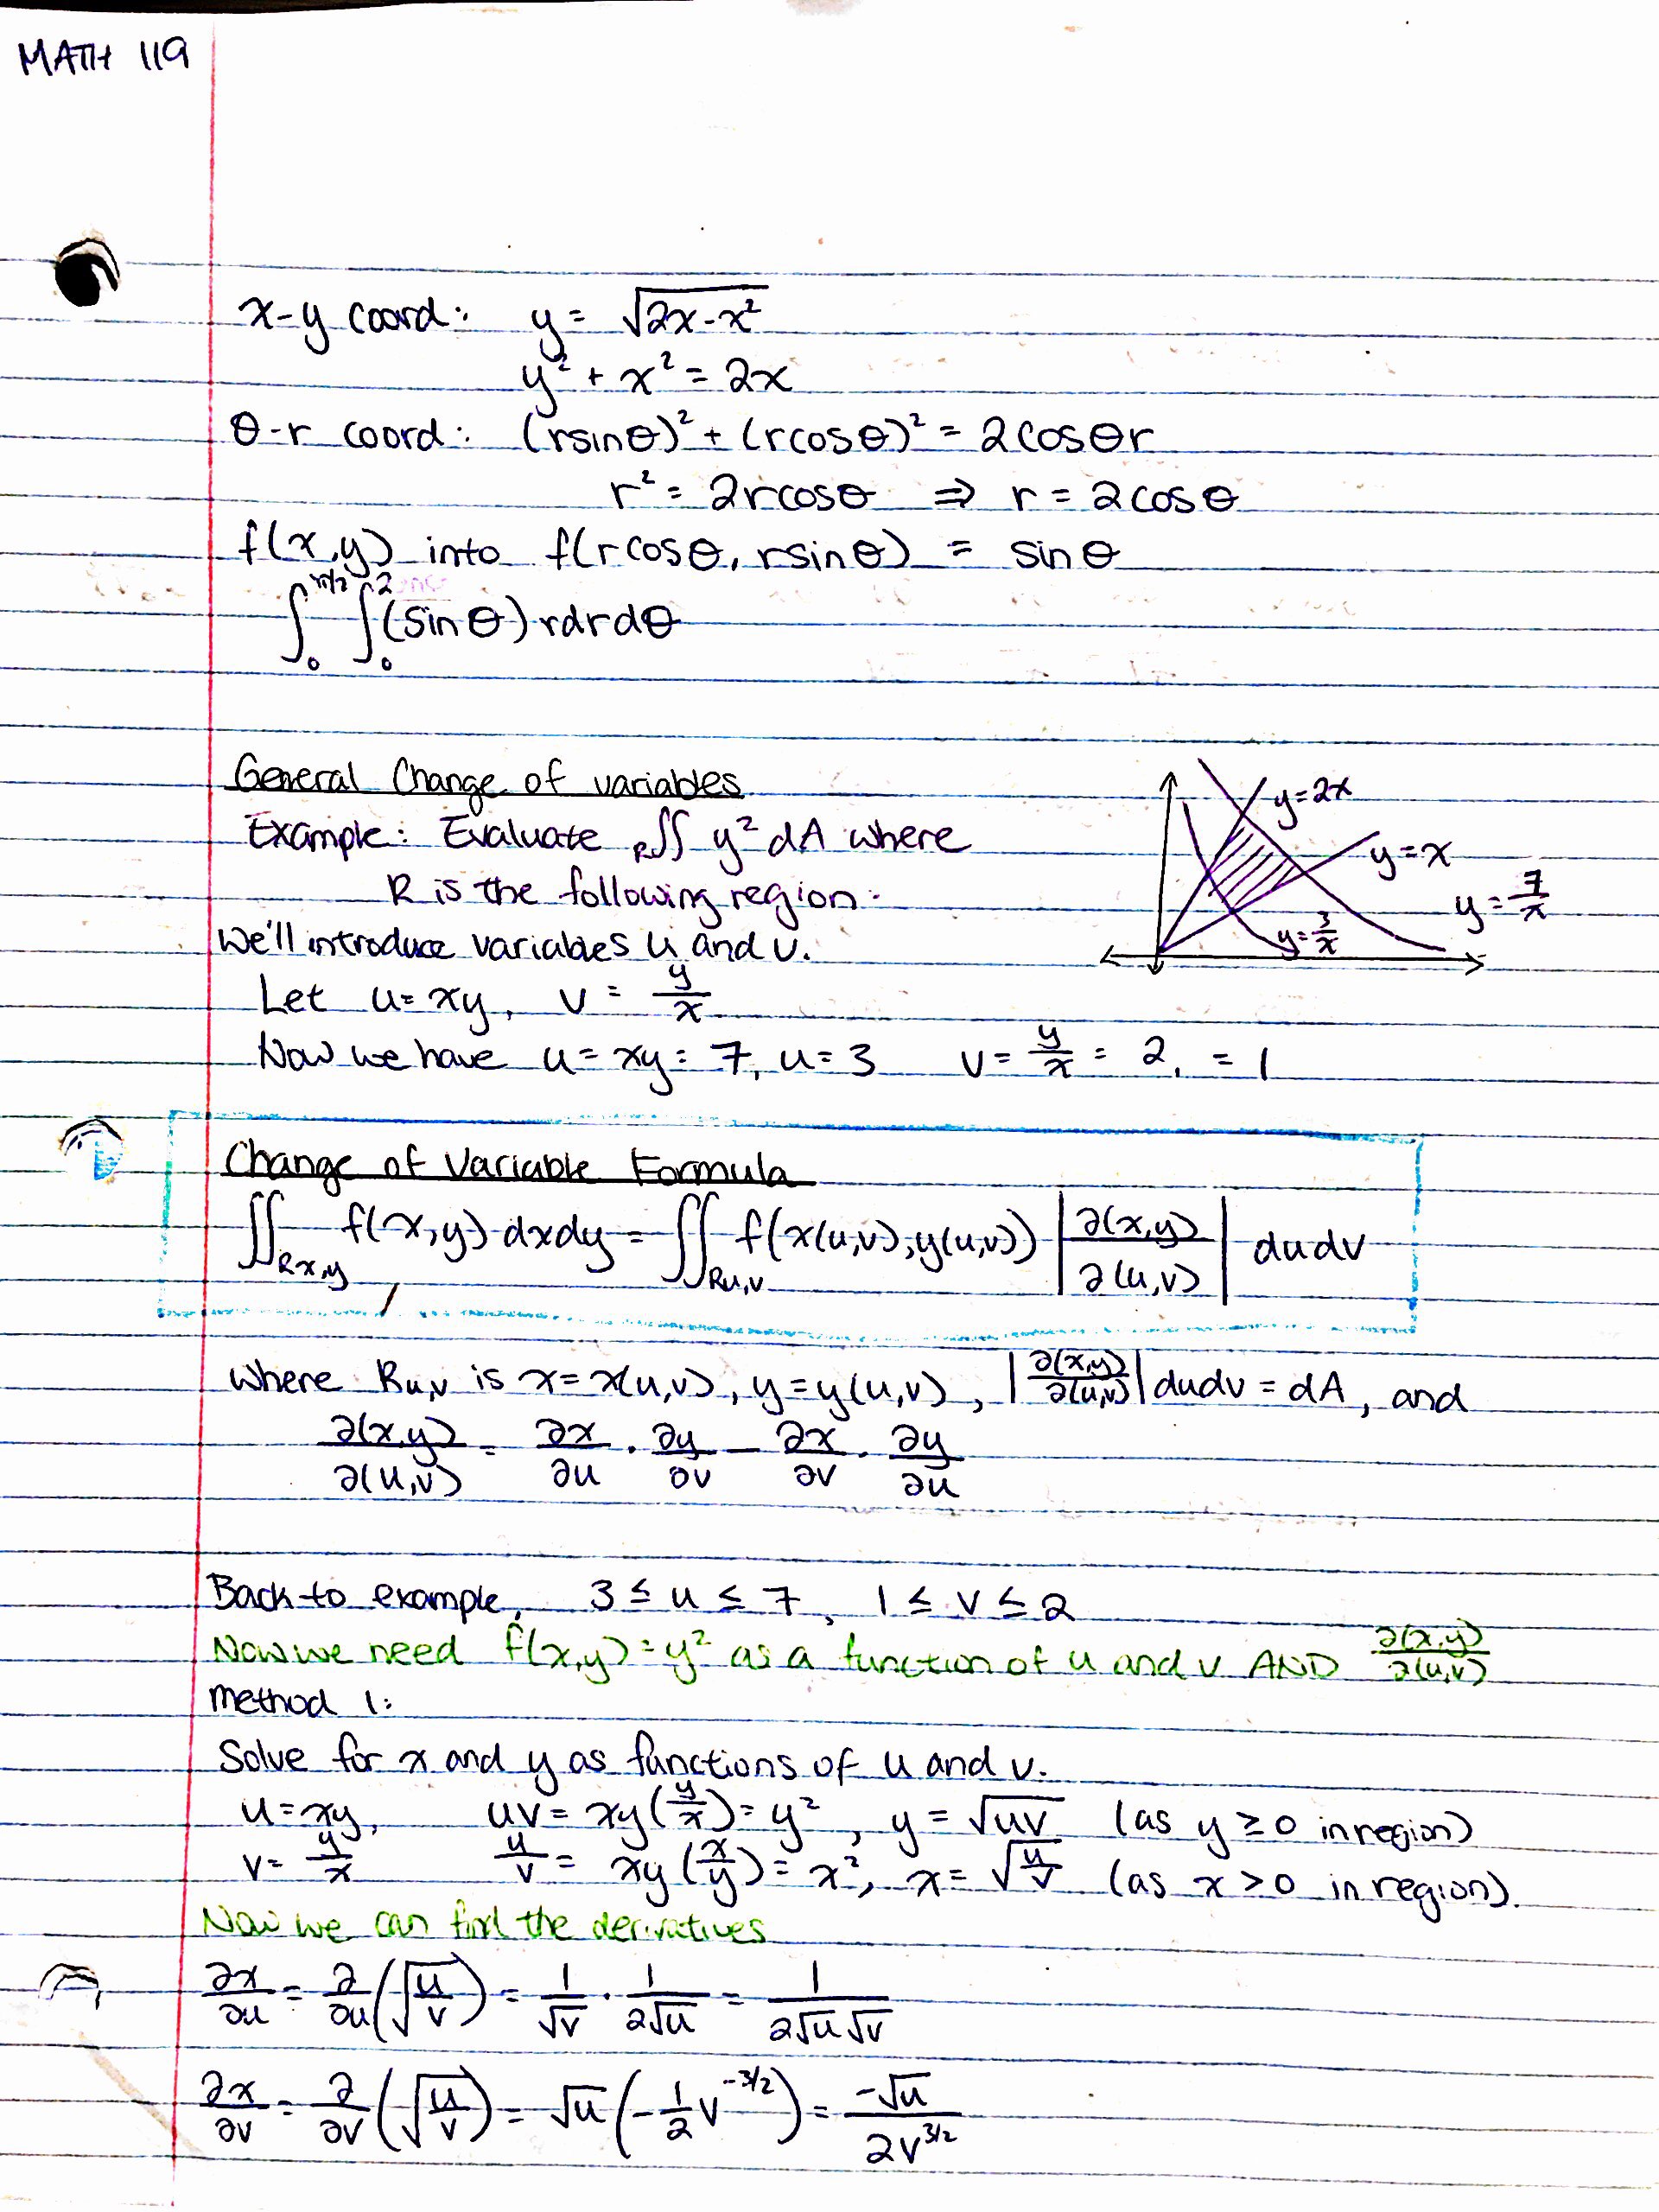 MATH 119
x-y coord: y = √(2x-x²)
y² + x² = 2x
θ-r coord: (rsinθ)² + (rcosθ)² = 2cosθr
r² = 2rcosθ ⇒ r = 2cosθ
f(x,y) into f(rcosθ, rsinθ) = sinθ
∫₀^(π/2) ∫₀^2 (sinθ) rdrdθ
General Change of variables
Example: Evaluate R∬ y² dA where
R is the following region:
y=2x
y=x
y=7/x
y=3/x
We'll introduce variables u and v.
Let u=xy, v = y/x
Now we have u=xy=7, u=3 v = y/x = 2, = 1
Change of Variable Formula
∬_Rx,y f(x,y) dxdy = ∬_Ru,v f(x(u,v), y(u,v)) |∂(x,y)/∂(u,v)| dudv
where Ru,v is x=x(u,v), y=y(u,v), |∂(x,y)/∂(u,v)| dudv = dA, and
∂(x,y)/∂(u,v) = ∂x/∂u · ∂y/∂v - ∂x/∂v · ∂y/∂u
Back to example, 3 ≤ u ≤ 7, 1 ≤ v ≤ 2
Now we need f(x,y)=y² as a function of u and v AND ∂(x,y)/∂(u,v)
method 1:
Solve for x and y as functions of u and v.
u=xy, uv = xy(y/x) = y², y = √(uv) (as y ≥ 0 in region)
v = y/x u/v = xy(x/y) = x², x = √(u/v) (as x > 0 in region).
Now we can find the derivatives
∂x/∂u = ∂/∂u(√(u/v)) = 1/√v · 1/(2√u) = 1/(2√u√v)
∂x/∂v = ∂/∂v(√(u/v)) = √u(-1/2 v^(-3/2)) = -√u/(2v^(3/2))